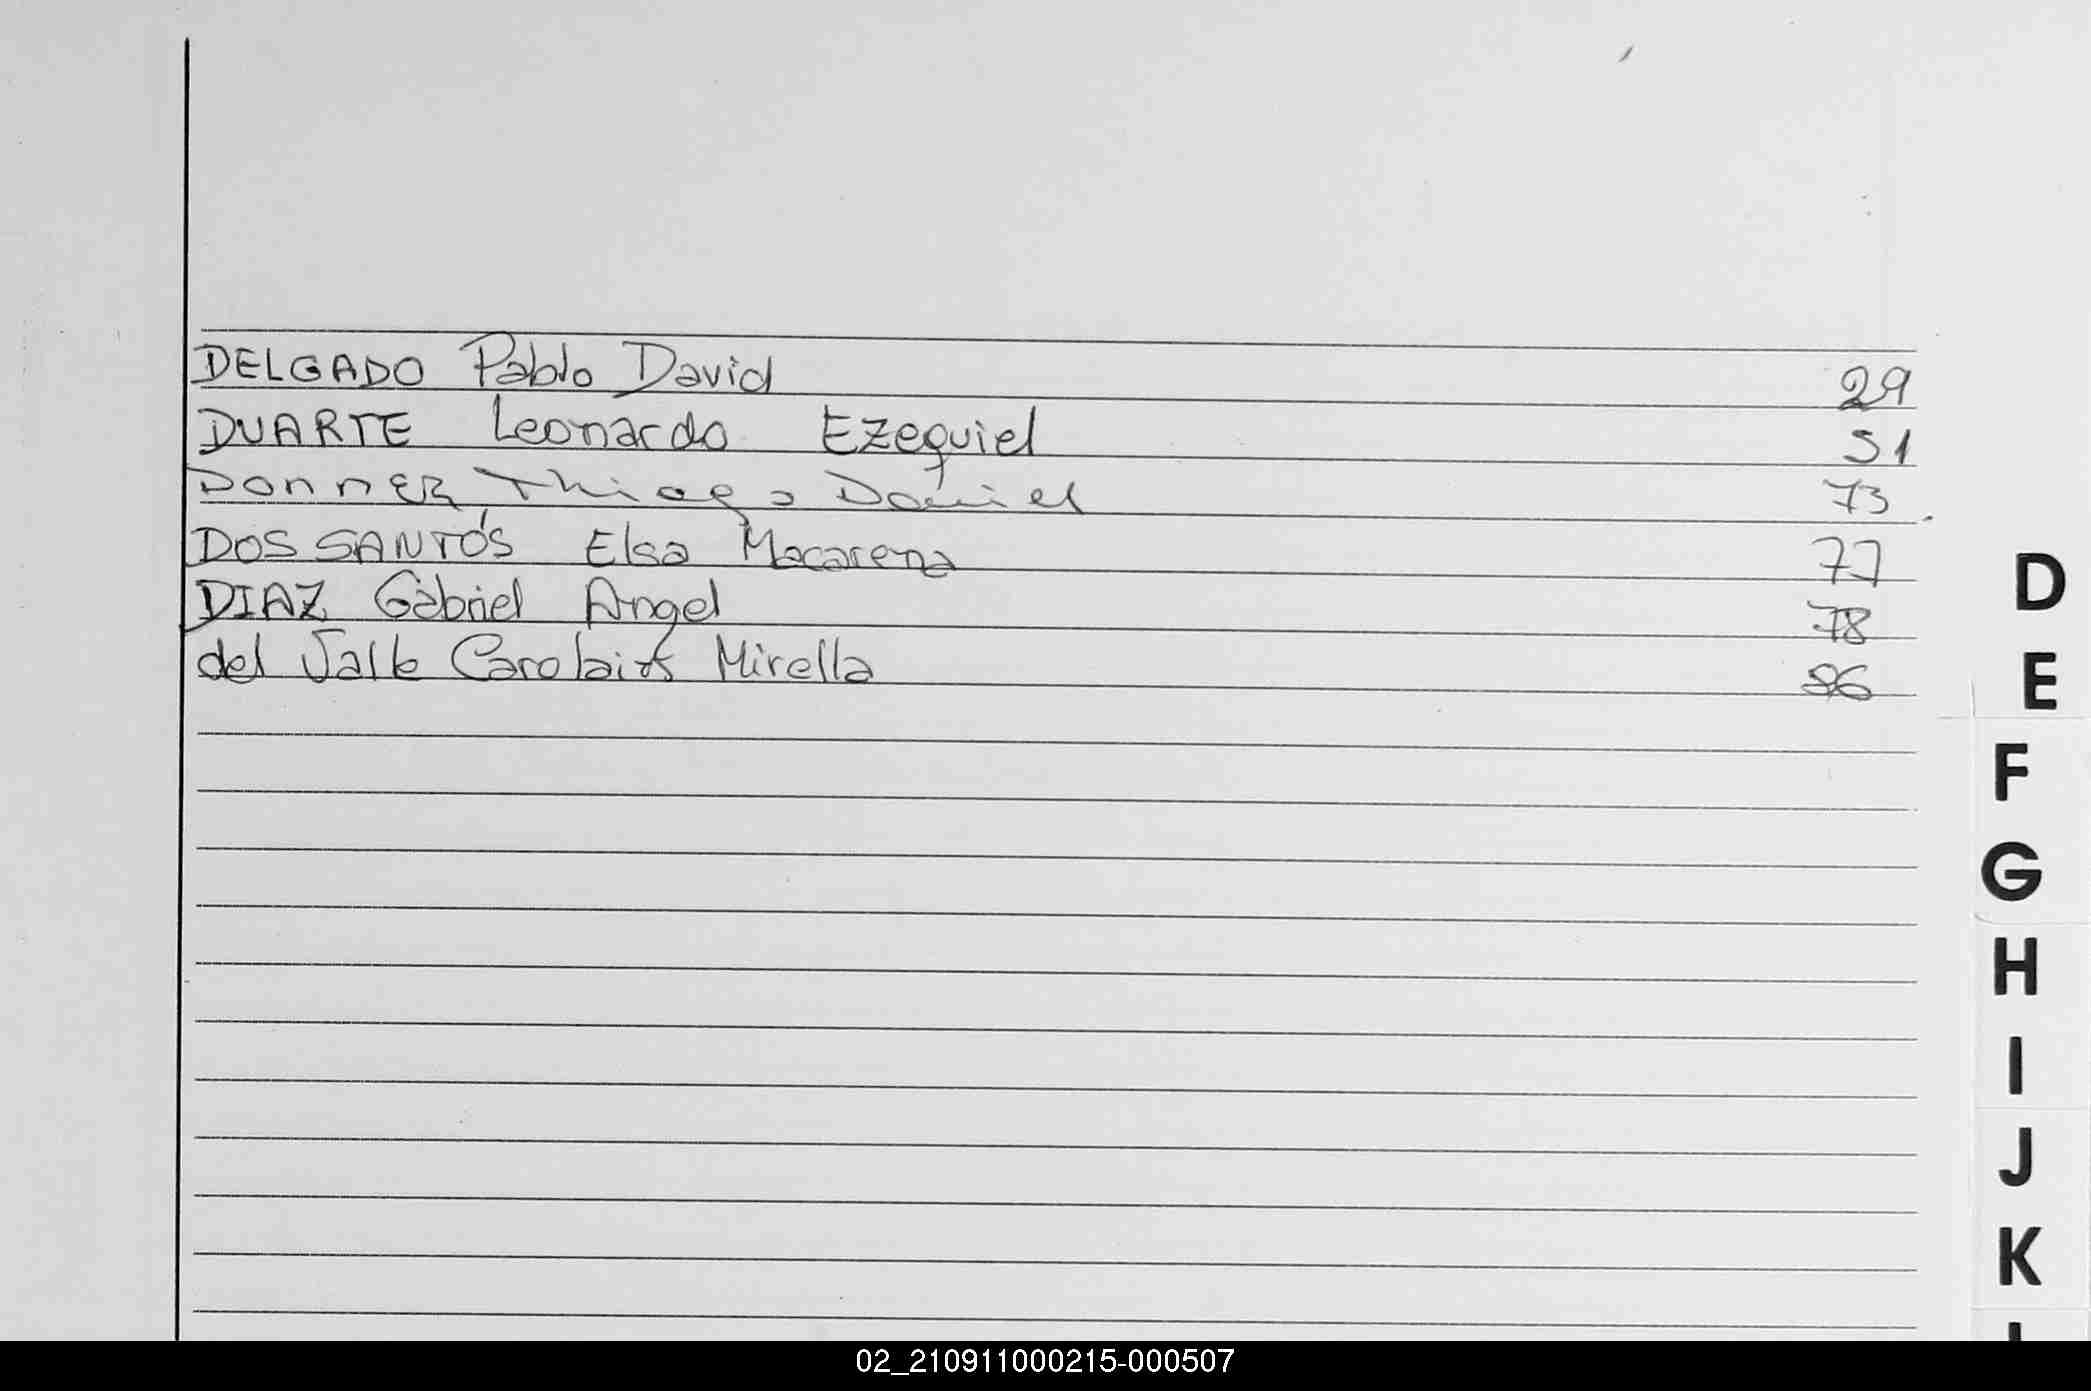 DELGADO Pablo David 29
DUARTE Leonardo Ezequiel 51
Donner Thiago Daniel 73
DOS SANTOS Elsa Macarena 77
DIAZ Gabriel Angel 78
del Valle Mirella 96
D
E
F
G
H
I
J
K
02_210911000215-000507